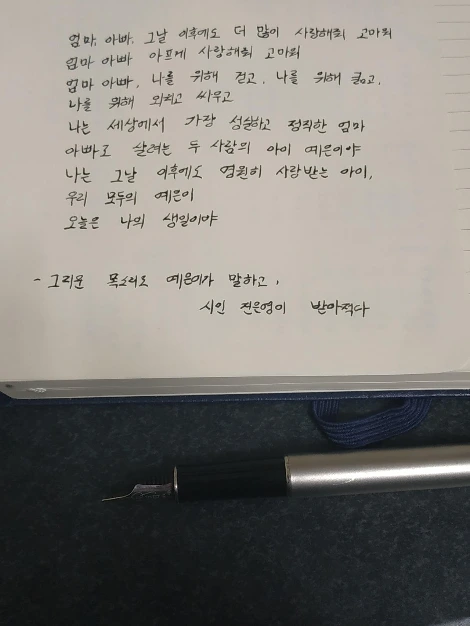 엄마, 아빠, 그날 이후에도 더 많이 사랑해줘 고마워
엄마 아빠 아프게 사랑해줘 고마워
엄마 아빠, 나를 위해 걷고, 나를 위해 굶고,
나를 위해 외치고 싸우고
나는 세상에서 가장 성실하고 정직한 엄마
아빠로 살려는 두 사람의 아이 예은이야
나는 그날 이후에도 영원히 사랑받는 아이,
우리 모두의 예은이
오늘은 나의 생일이야
- 그리운 목소리로 예은이가 말하고,
시인 진은영이 받아적다